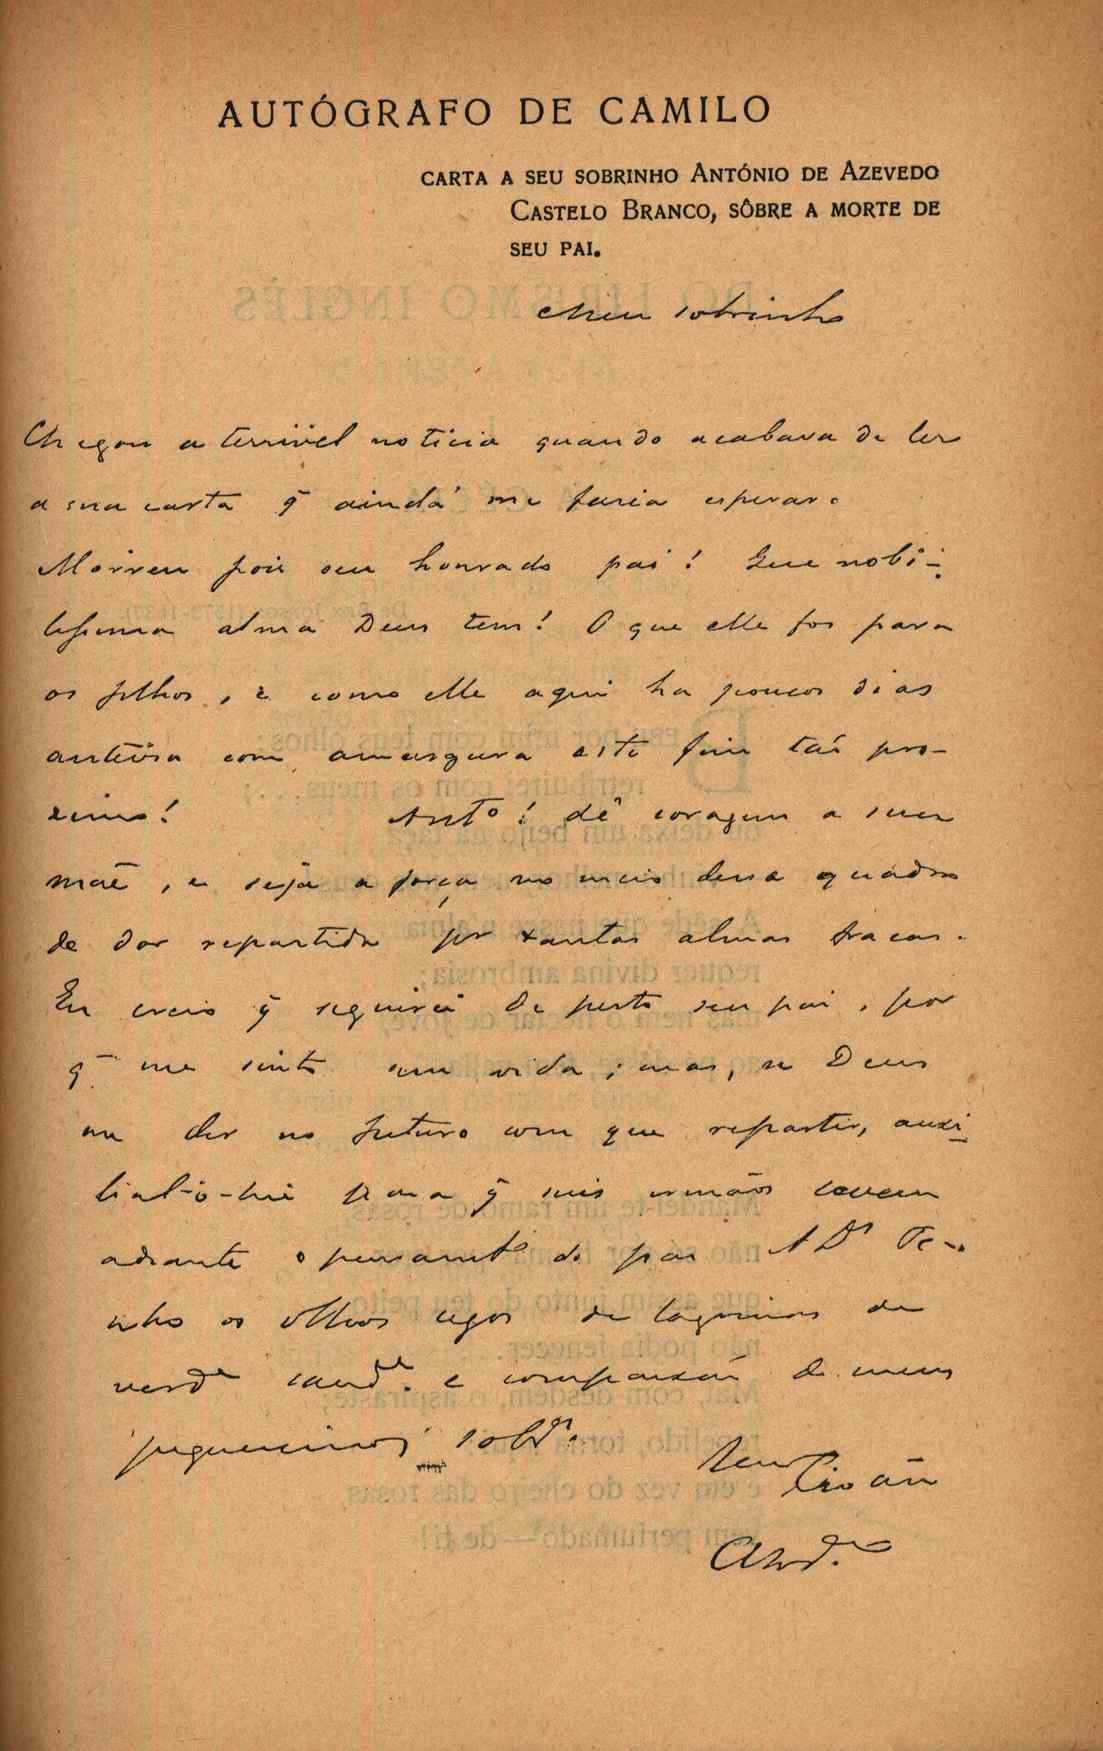 AUTÓGRAFO DE CAMILO
CARTA A SEU SOBRINHO ANTÓNIO DE AZEVEDO
CASTELO BRANCO, SÔBRE A MORTE DE
SEU PAI.
Meu sobrinho
Chegou a terrivel noticia quando acabava de ler
a sua carta q̃ ainda me fazia esperar.
Morreu pois seu honrado pai! Que nobi-
lissima alma Deus tem! O que elle foi para
os filhos, e como elle aqui ha poucos dias
antevia com amargura este fim tão pro-
ximo! Antº! dê coragem a sua
mãe, e seja a força no meio desse quadro
de dor repartida por tantas almas fracas.
Eu creio q̃ seguirei de perto seu pai, por
q̃ me sinto sem vida; mas, se Deus
me der no futuro com que repartir, auxi-
lial-o-hei para q̃ seus irmãos levem
adiante o pensamtº do pai. A Ds Te-
nho os olhos cegos de lagrimas de
verdª saudᵉ. e compaixão de meus
pequeninos sobrºs.
Seu Tio am
Obrdº